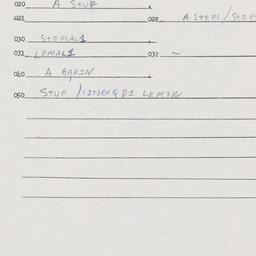 020 A STUF
021 022 A STEPS/STEP
030 STEPLAL1
031 LEMAL1 032 —
040 A BARIN
050 STUF D1 LEM3N